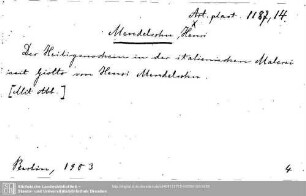 Art. plast. 1187,14
Mendelsohn Henri
Der Heiligenschein in der italienischen Malerei
seit Giotto von Henri Mendelsohn.
[Mit Abb.]
Berlin, 1903
4
Sächsische Landesbibliothek -
Staats- und Universitätsbibliothek Dresden